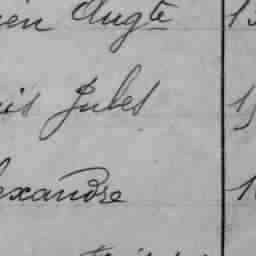 ien Augte 1
is Jules 15
exandre 1